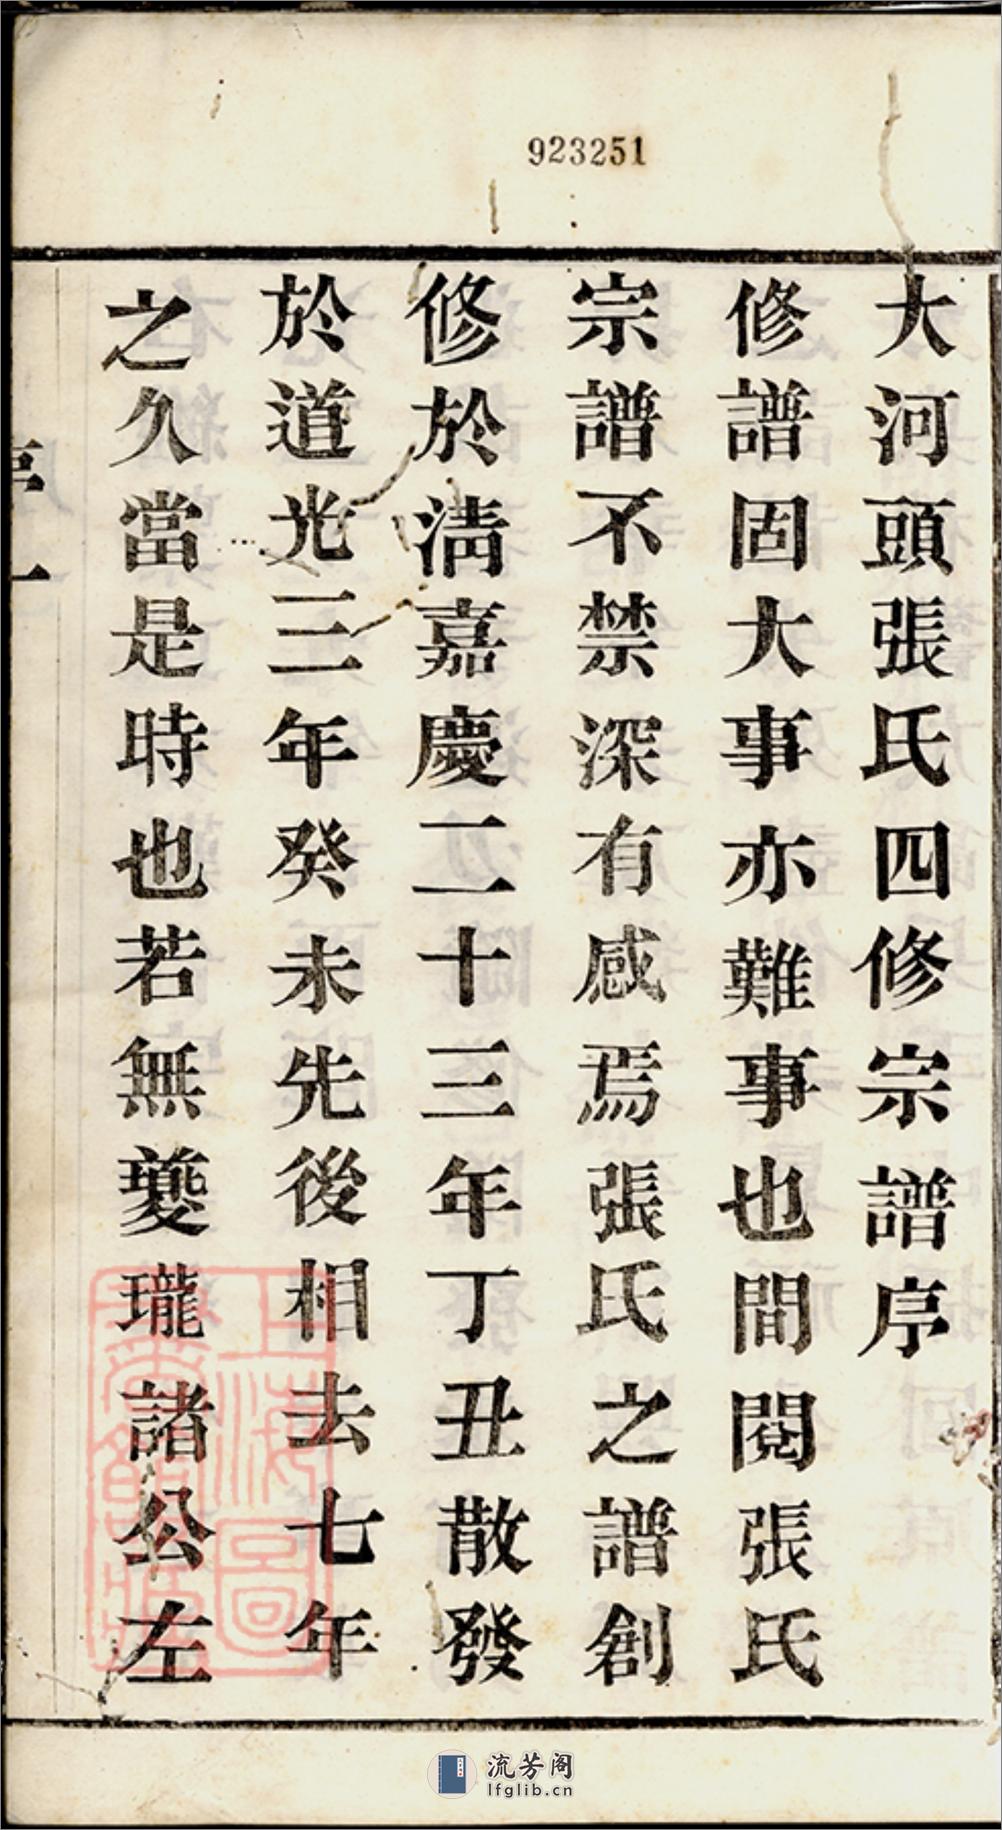 923251
大河頭張氏四修宗譜序
修譜固大事亦難事也間閱張氏
宗譜不禁深有感焉張氏之譜創
修於清嘉慶二十三年丁丑散發
於道光三年癸未先後相去七年
之久當是時也若無夔瓏諸公左
序一
上海圖書館藏
流芳阁
lfglib.cn